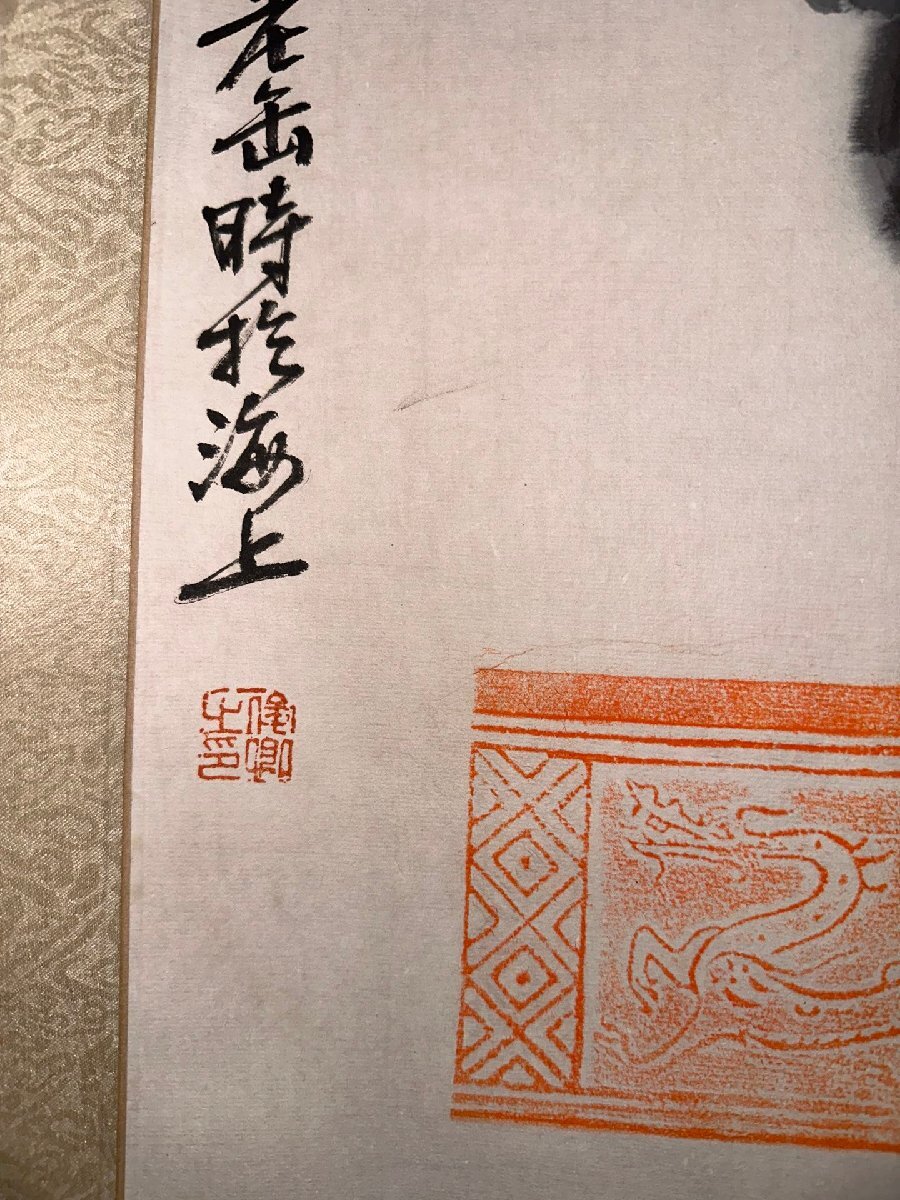 老缶時於海上
俊卿之印